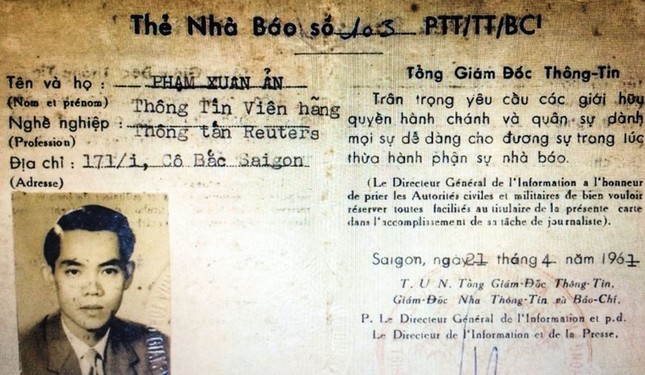 Thẻ Nhà Báo số 103 PTT/TT/BC1
Tên và họ : PHẠM XUAN ẨN
(Nom et prénom) Thông Tín Viên hãng
Nghề nghiệp : Thông tấn Reuters
(Profession)
Địa chỉ : 171/i, Cô Bắc Saigon
(Adresse)
Tổng Giám Đốc Thông-Tin
Trân trọng yêu cầu các giới hữu
quyền hành chánh và quân sự dành
mọi sự dễ dàng cho đương sự trong lúc
thừa hành phận sự nhà báo.
(Le Directeur Général de l'Information a l'honneur
de prier les Autorités civiles et militaires de bien vouloir
réserver toutes facilités au titulaire de la présente carte
dans l'accomplissement de sa tâche de journaliste).
Saigon, ngày 21 tháng 4 năm 1961
T. U. N. Tổng Giám-Đốc Thông-Tin,
Giám-Đốc Nha Thông-Tin và Báo-Chí.
P. Le Directeur Général de l'Information et p.d.
Le Directeur de l'Information et de la Presse,